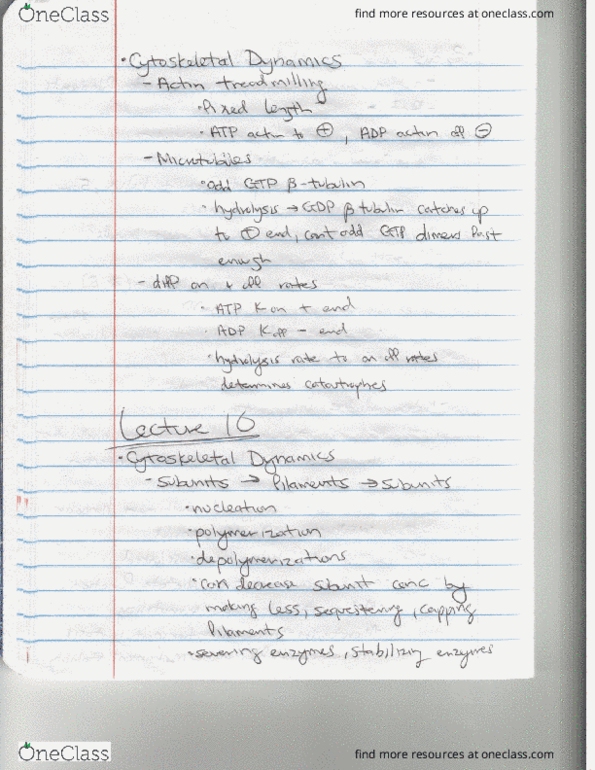 OneClass
find more resources at oneclass.com
• Cytoskeletal Dynamics
- Actin treadmilling
• fixed length
• ATP actin to ⊕, ADP actin off ⊖
- Microtubules
• add GTP β-tubulin
• hydrolysis → GDP β tubulin catches up
to ⊕ end, cant add GTP dimers fast
enough
- diff on + off rates
• ATP Kon + end
• ADP Koff - end
• hydrolysis rate to on off rates
determines catastrophes
Lecture 16
• Cytoskeletal Dynamics
- Subunits → filaments → subunits
• nucleation
• polymerization
• depolymerizations
• can decrease subunit conc by
making less, sequestering, capping
filaments
• severing enzymes, stabilizing enzymes
OneClass
find more resources at oneclass.com